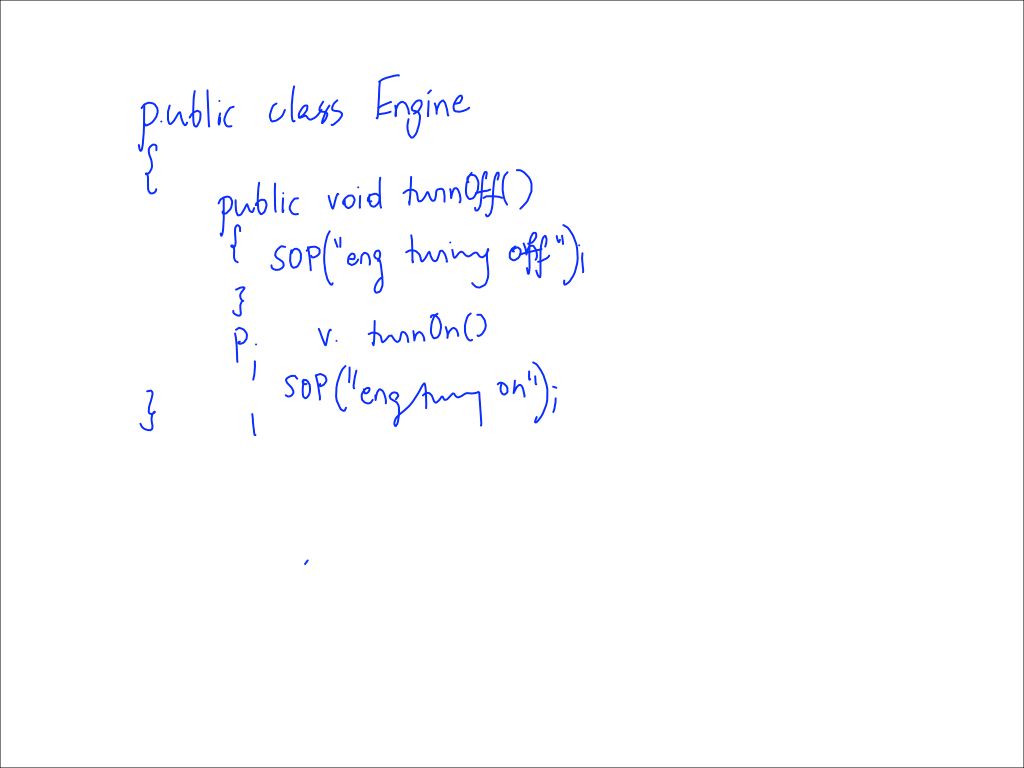 public class Engine
{
public void turnOff()
{ SOP("eng turing off");
}
p. v. turnOn()
SOP("eng turng on");
}